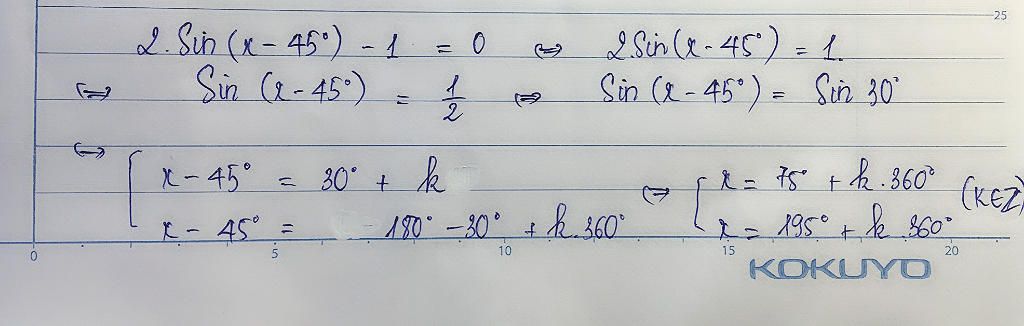 25
2.Sin(x-45°)-1 = 0 ⇔ 2Sin(x-45°) = 1.
⇔ Sin (x-45°) = 1/2 ⇔ Sin (x-45°) = Sin 30°
⇔ [ x-45° = 30° + k ⇔ [ x = 75° + k.360° (K∈Z)
x- 45° = -180° -30° + k.360° x = 195° + k 360°
0 5 10 15 20
KOKUYO